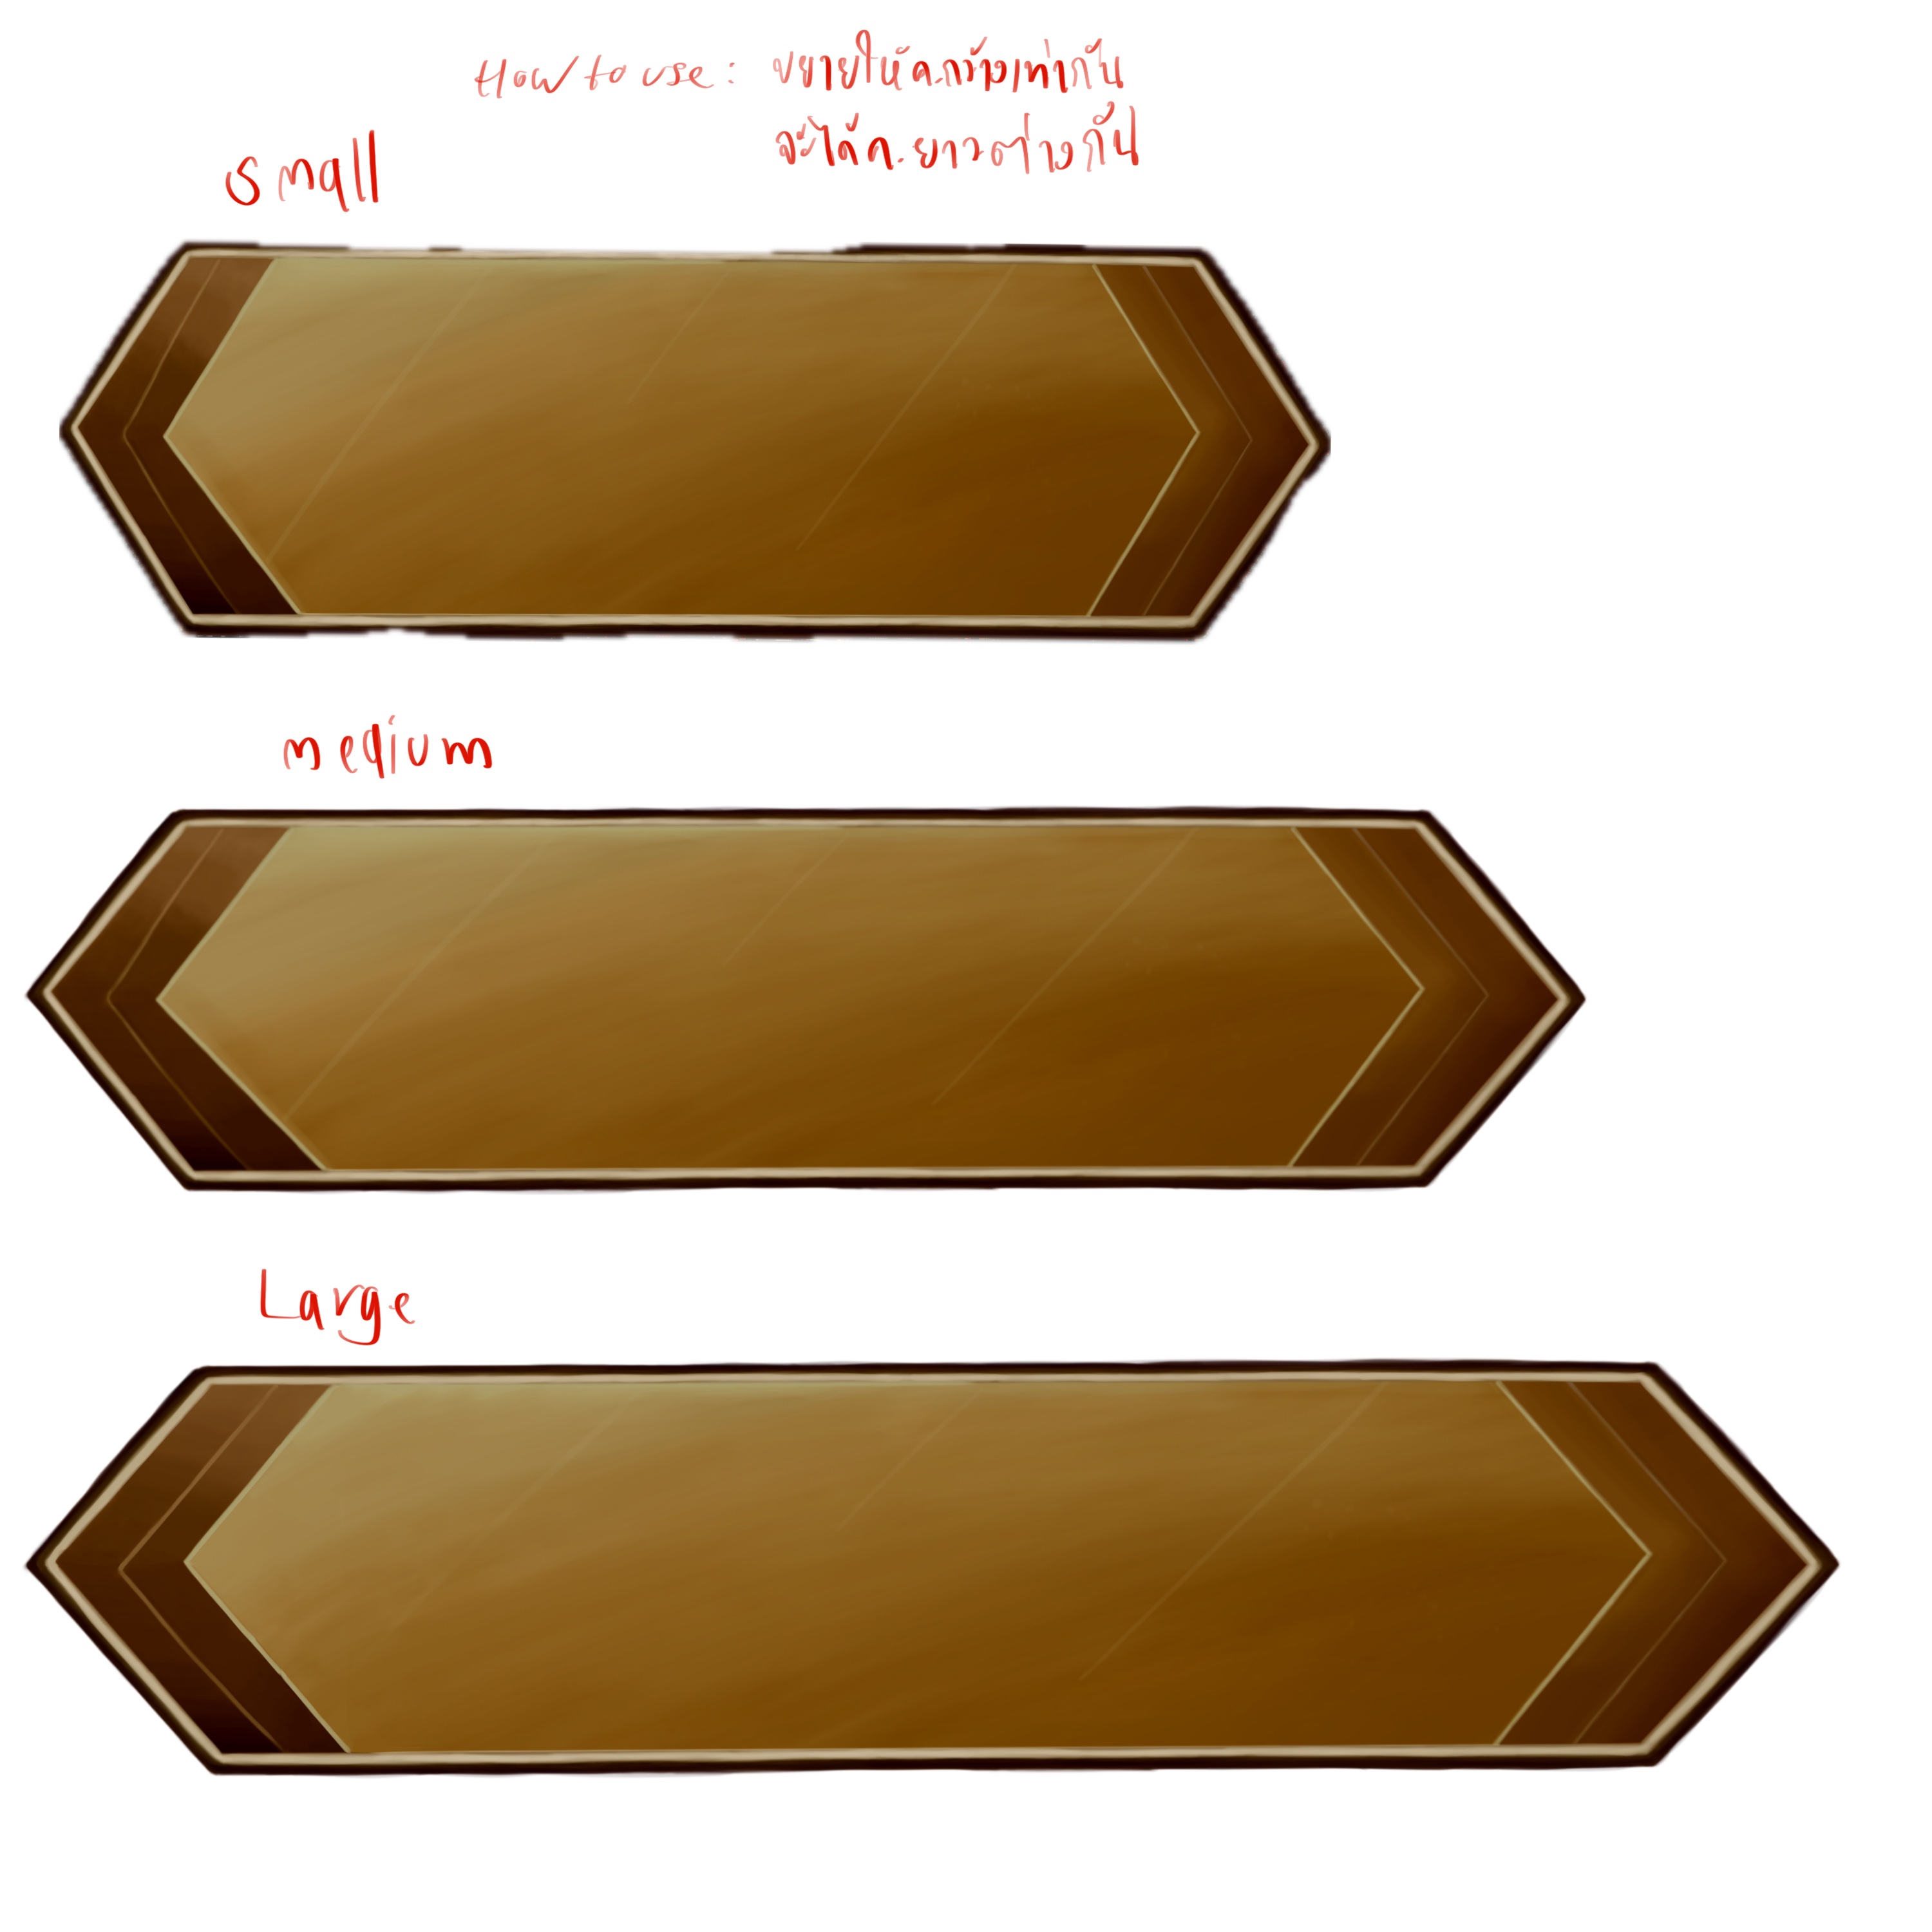 How to use: ขยายให้ค.กว้างเท่ากัน
จะได้ค.ยาวต่างกัน
small
medium
Large